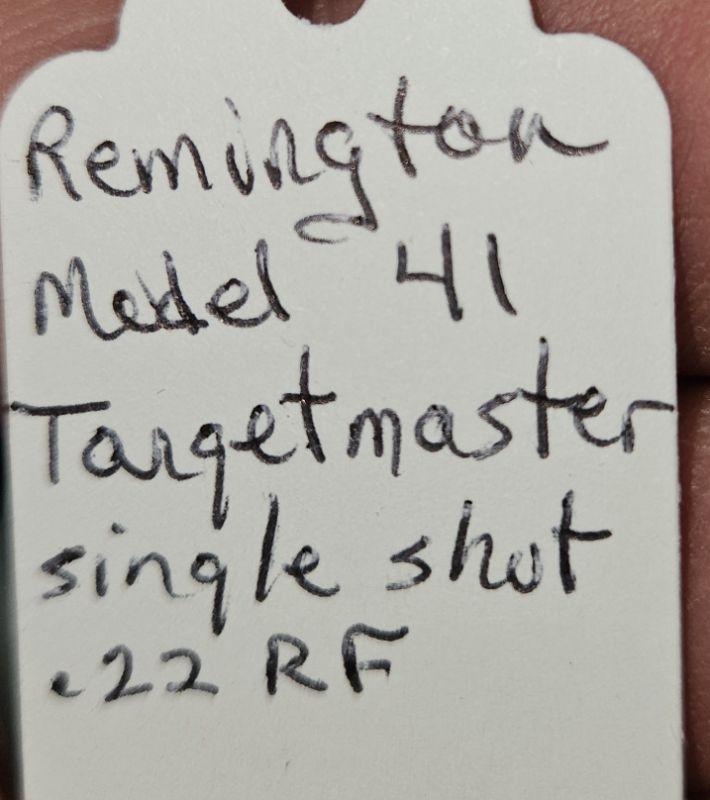 Remington
Model 41
Targetmaster
single shot
.22 RF